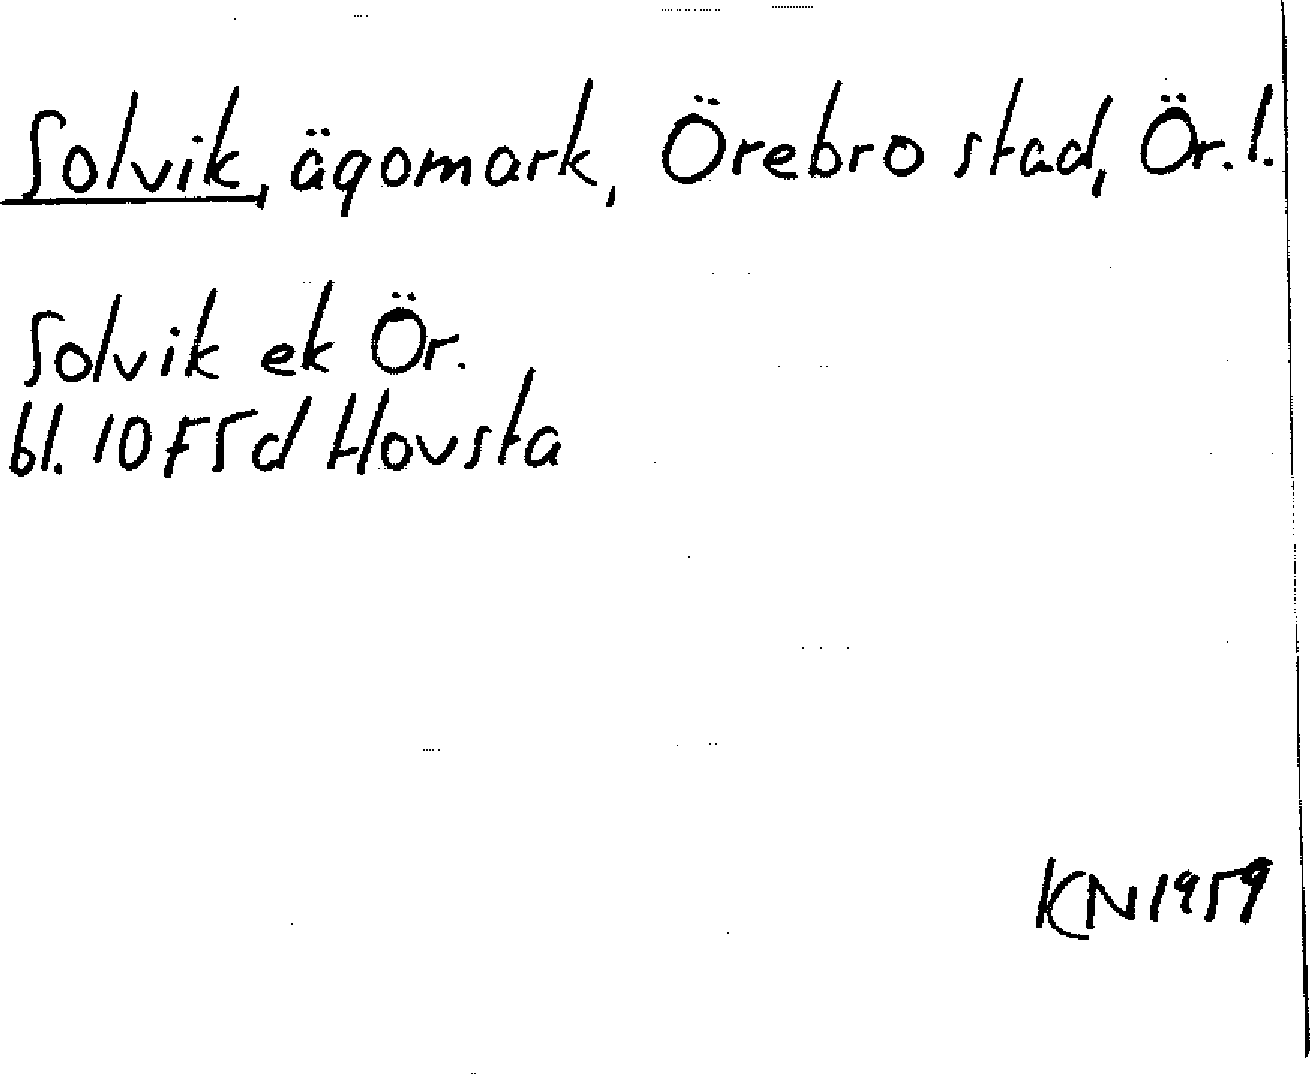 Solvik, ägomark, Örebro stad, Ör. l.
Solvik ek Ör.
bl. 10F5d Hovsta
KN 1959